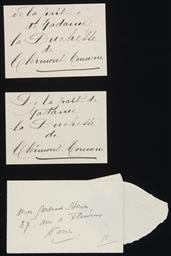 de la part de
Madame
la Duchesse
de
Clermont Tonnerre
De la part de
Madame
la Duchesse
de
Clermont Tonnerre
Miss
27 rue de Fleurus
Paris